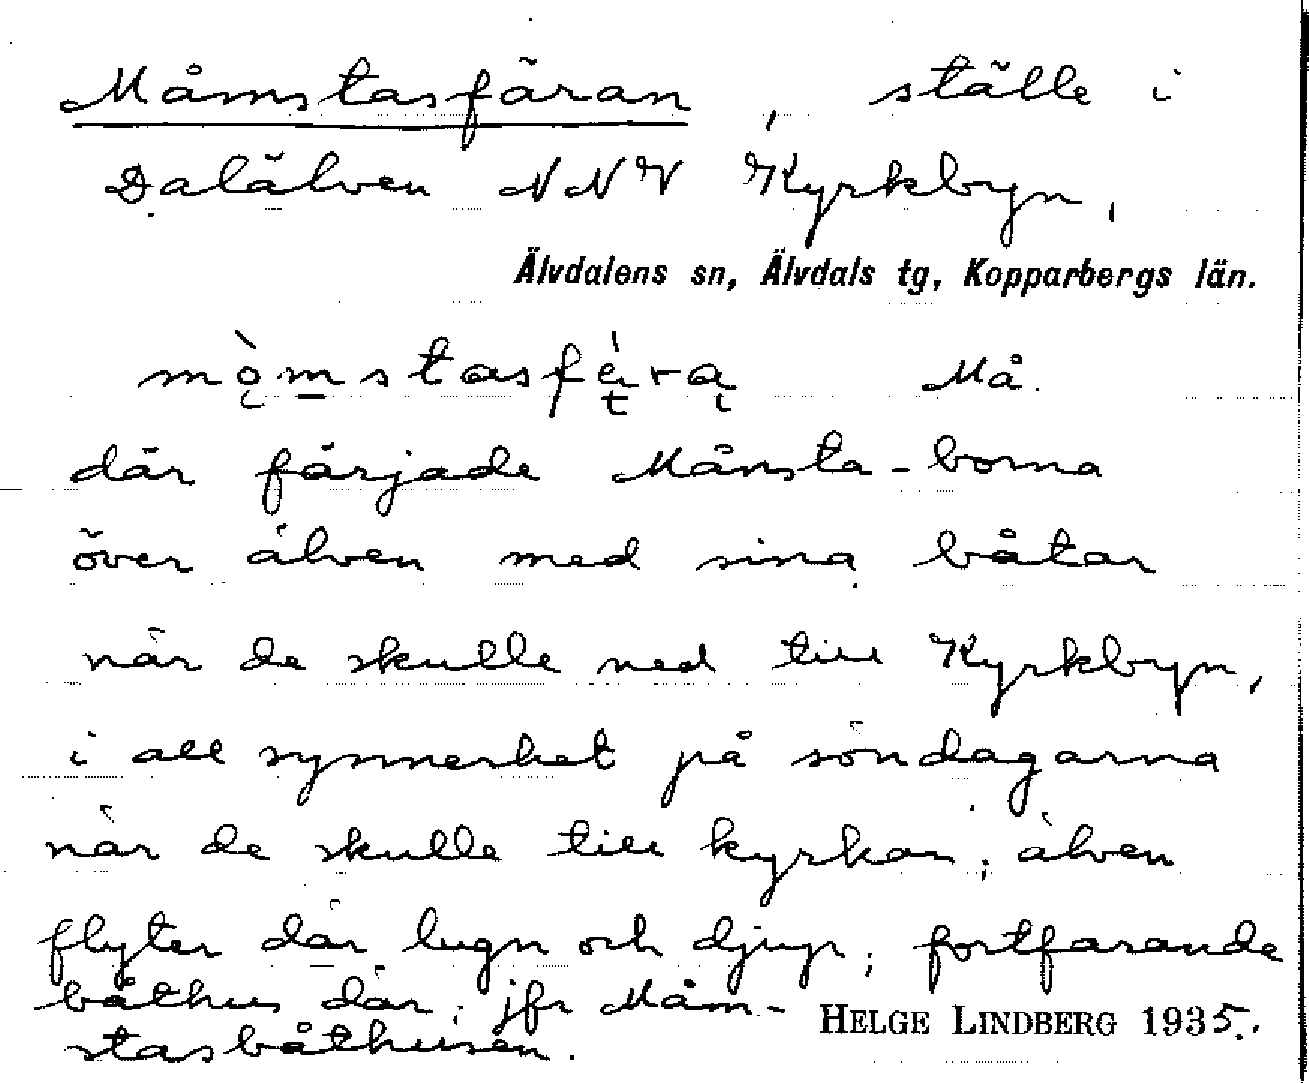 Måmstasfäran, ställe i
Dalälven NNV Kyrkbyn,
Älvdalens sn, Älvdals tg, Kopparbergs län.
Må.
där färjade Månsta-borna
över älven med sina båtar
när de skulle ned till Kyrkbyn,
i all synnerhet på söndagarna
när de skulle till kyrkan; älven
flyter där lugn och djup; fortfarande
båthus där; jfr Måm-
stasbåthusen.
HELGE LINDBERG 1935.